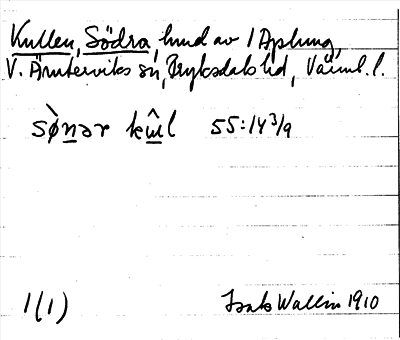 Kullen, Södra, hmd av 1 Aplung,
V. Ämterviks sn, Fryksdals hd, Värml. l.
sø̀nər kɯ̂l 55:14 3/9
1(1) Isak Wallin 1910